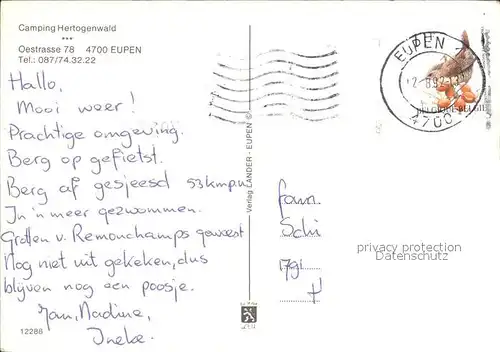 Camping Hertogenwald
***
Oestrasse 78 4700 EUPEN
Tel.: 087/74.32.22
Hallo,
Mooi weer!
Prachtige omgeving.
Berg op gefietst.
Berg af gesjeesd 53kmpu
In 'n meer gezwommen.
Grotten v. Remonchamps geweest
Nog niet uit gekeken, dus
blijven nog een poosje.
Jan, Nadine,
Ineke.
12288
Verlag LANDER - EUPEN ©
EUPEN
4700
fam.
Schi
privacy protection
Datenschutz